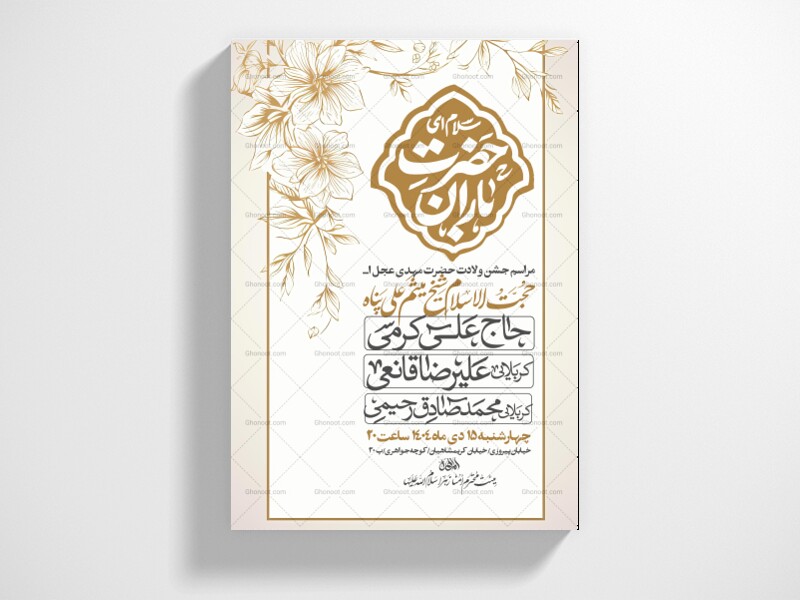 سلام ای
حضرت
باران
مراسم جشن ولادت حضرت مهدی عجل ا...
حجت الاسلام شیخ میثم علی پناه
حاج علی کرمی
کربلایی علیرضا قانعی
کربلایی محمدصادق رحیمی
چهارشنبه ۱۵ دی ماه ۱۴۰۴ ساعت ۲۰
خیابان پیروزی/ خیابان کریمشاهیان/ کوچه جواهری/پ ۳۰
Ghonoot.com